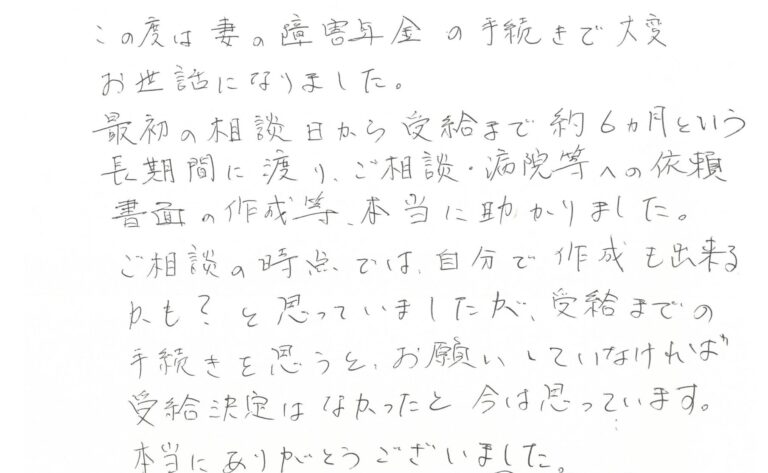 この度は妻の障害年金の手続きで大変
お世話になりました。
最初の相談日から受給まで約6ヵ月という
長期間に渡り、ご相談・病院等への依頼
書面の作成等、本当に助かりました。
ご相談の時点では、自分で作成も出来る
かも？と思っていましたが、受給までの
手続きを思うと、お願いしていなければ
受給決定はなかったと今は思っています。
本当にありがとうございました。